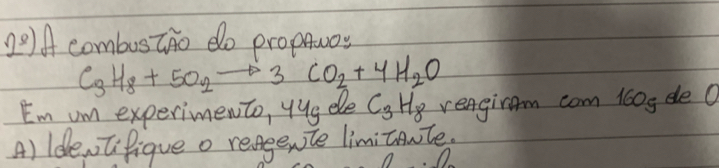 2º) A combustão do propano:
C3H8 + 5O2 → 3 CO2 + 4H2O
Em um experimento, 44g de C3H8 reagiram com 160g de O
A) Identifique o reagente limitante.